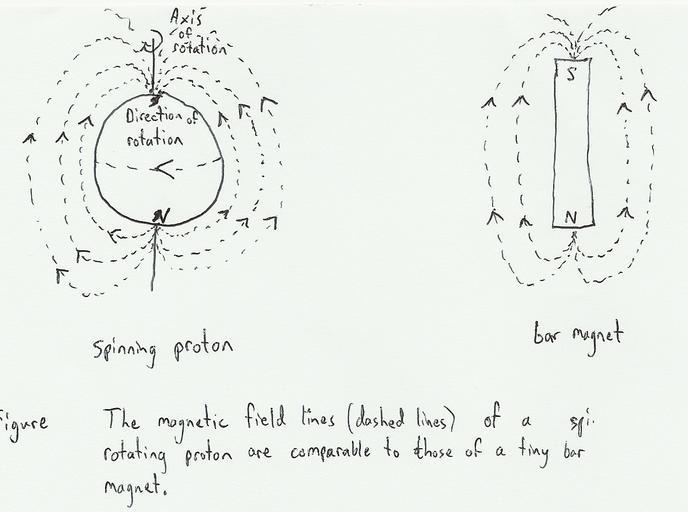 Axis
of
rotation
S
Direction of
rotation
N
S
N
spinning proton
bar magnet
igure The magnetic field lines (dashed lines) of a spi
rotating proton are comparable to those of a tiny bar
magnet.